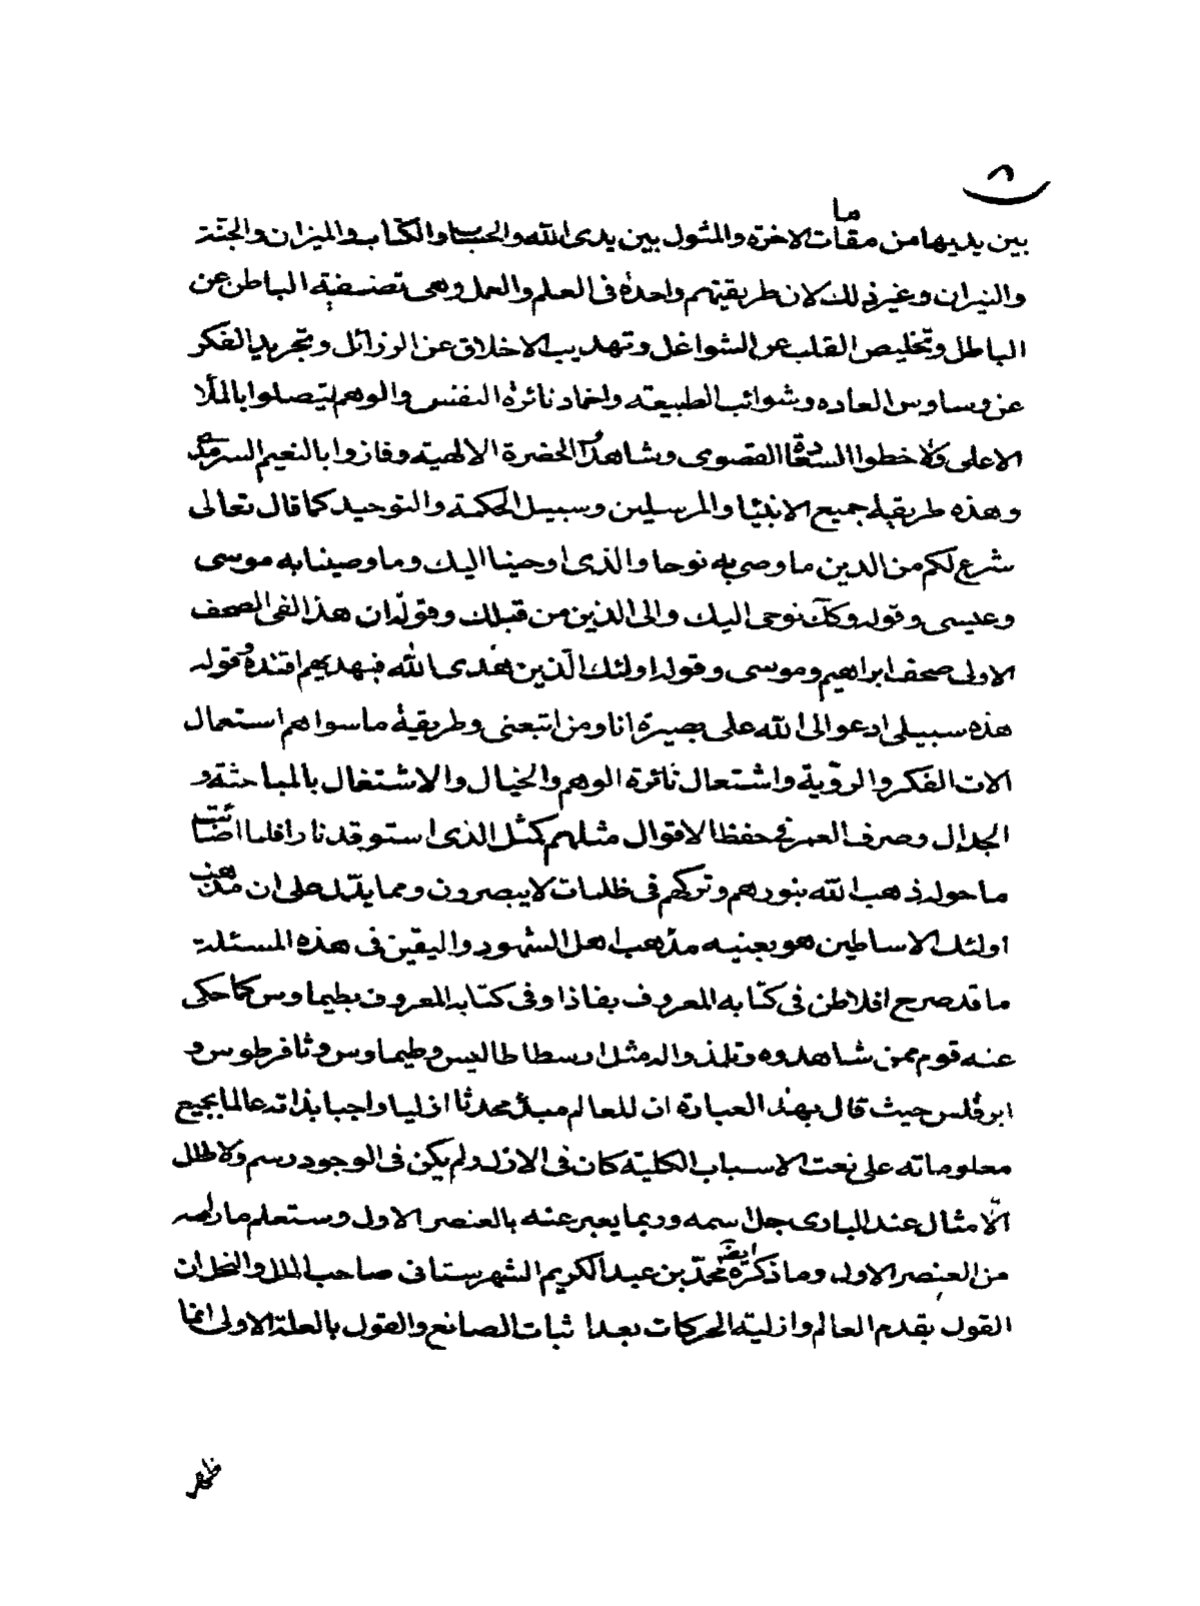 ٨
بين يديها من مقامات الاخرة والمثول بين يدى الله والحساب والكتاب والميزان والجنة
والنيران وغير ذلك لان طريقتهم واحدة فى العلم والعمل وهى تصفية الباطن عن
الباطل وتخليص القلب عن الشواغل وتهذيب الاخلاق عن الرزائل وتجريد الفكر
عن وساوس العاده وشوائب الطبيعته واخماد نائرة النفس والوهم ليتصلوا بالملا
الاعلى ولاخطوا السعادة القصوى وشاهدوا الحضرة الالهية وفازوا بالنعيم السرمد
وهذه طريقة جميع الانبيا والمرسلين وسبيل الحكمة والتوحيد كما قال تعالى
شرع لكم من الدين ما وصى به نوحا والذى اوحينا اليك وما وصينا به موسى
وعيسى وقوله وكك نوحى اليك والى الذين من قبلك وقوله ان هذا لفى الصحف
الاولى صحف ابراهيم وموسى وقوله اولئك الذين هدى الله فبهديهم اقتده وقوله
هذه سبيلى ادعو الى الله على بصيرة انا ومن اتبعنى وطريقة ما سواهم استعمال
الات الفكر والرؤية واشتعال نائرة الوهم والخيال والاشتغال بالمباحثة و
الجدال وصرف العمر فى حفظ الاقوال مثلهم كمثل الذى استوقد نارا فلما اضائت
ما حوله ذهب الله بنورهم وتركهم فى ظلمات لا يبصرون ومما يدّل على ان مذهب
اولئك الاساطين هو بعينه مذهب اهل الشهود واليقين فى هذه المسئلة
ما قد صرح افلاطن فى كتابه المعروف بفاذا وفى كتابه المعروف بطيماوس كما حكى
عنه قوم ممن شاهدوه وتلمذوا له مثل ارسطاطاليس وطيماوس وثافرطوس و
ابرقلس حيث قال بهذه العبارة ان للعالم مبدئ محدثا ازليا واجبا بذاته عالما بجميع
معلوماته على نعت الاسباب الكلية كان فى الازل ولم يكن فى الوجود رسم ولا طلل
الّا مثال عند البارى جل اسمه وربما يعبر عنه بالعنصر الاول وستعلم مارامه
من العنصر الاول وما ذكره ايضا محمد بن عبد الكريم الشهرستانى صاحب الملل والنحل ان
القول بقدم العالم وازلية الحركات بعد اثبات الصانع والقول بالعلة الاولى انما
ظهر